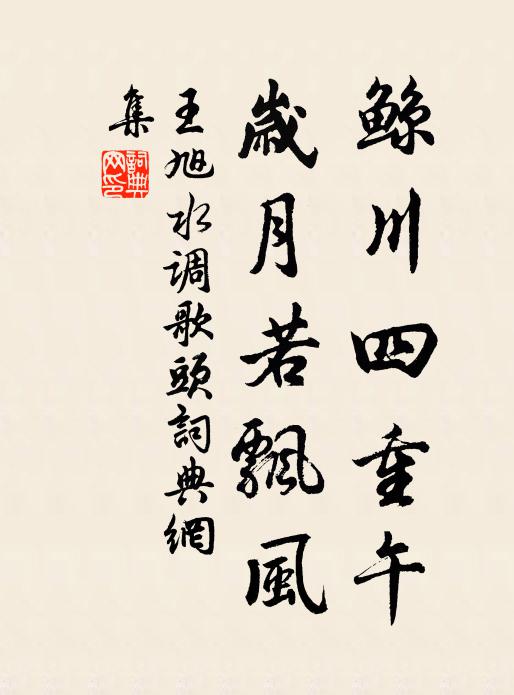 鲸川四重午
歲月若飄風
王旭水调歌頭詞典網
集
詞典网印